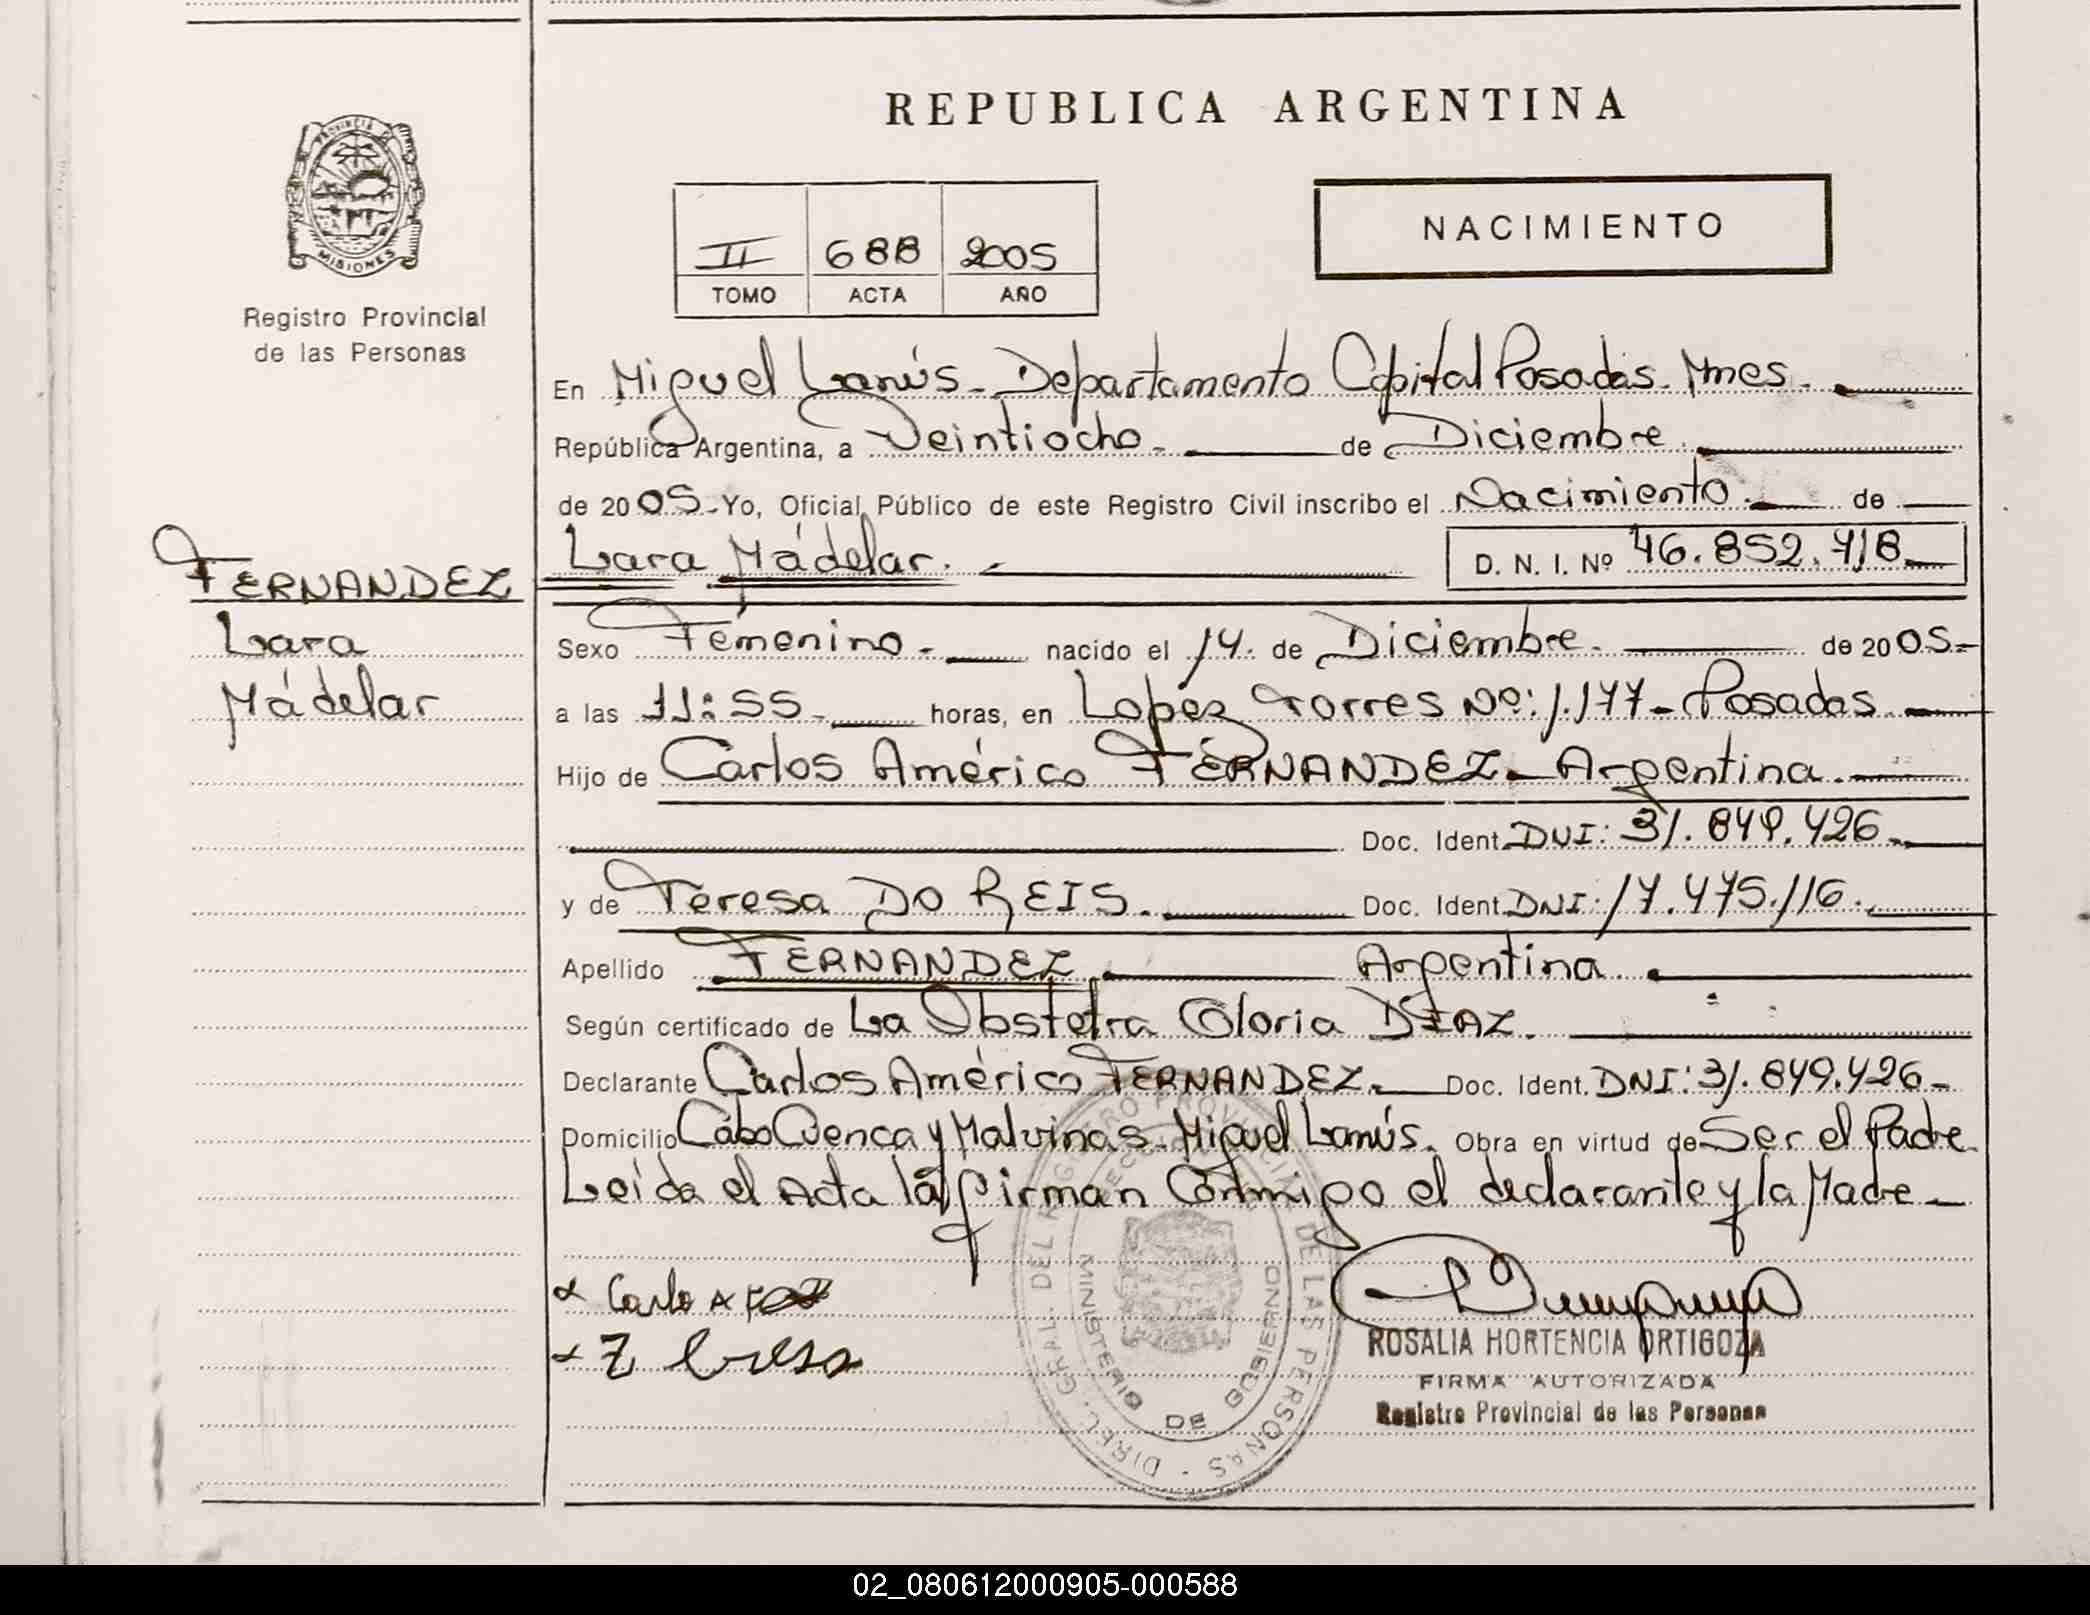 REPUBLICA ARGENTINA
PROVINCIA DE
MISIONES
Registro Provincial
de las Personas
II 688 2005
TOMO ACTA AÑO
NACIMIENTO
En Miguel Lanús - Departamento Capital Posadas - Mnes.
República Argentina, a Veintiocho. de Diciembre.
de 2005 - Yo, Oficial Público de este Registro Civil inscribo el Nacimiento. de
Lara Mádelar. D. N. I. Nº 46.852.418
FERNANDEZ
Lara
Mádelar
Sexo Femenino. nacido el 14. de Diciembre. de 2005.-
a las 11:55 - horas, en Lopéz Torres Nº: 1.177 - Posadas.
Hijo de Carlos Américo FERNANDEZ - Argentina.
Doc. Ident. DNI: 31.849.426.
y de Teresa DO REIS. Doc. Ident. DNI: 17.475.116.
Apellido FERNANDEZ Argentina.
Según certificado de La Obstetra Gloria DIAZ.
Declarante Carlos Américo FERNANDEZ. Doc. Ident. DNI: 31.849.426 -
Domicilio Cabo Cuenca y Malvinas - Miguel Lanús. Obra en virtud de Ser el Padre.
Leída el Acta la firman Conmigo el declarante y la Madre -
DIREC. GRAL. DEL REGISTRO PROVINCIAL DE LAS PERSONAS
MINISTERIO DE GOBIERNO
ROSALIA HORTENCIA ORTIGOZA
FIRMA AUTORIZADA
Registro Provincial de las Personas
02_080612000905-000588